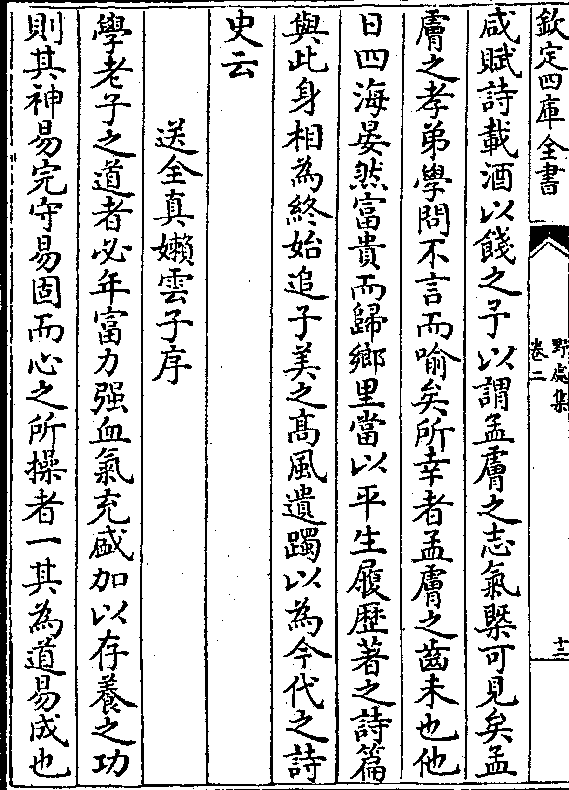 欽定四庫全書
野處集
卷二
十三
咸賦詩載酒以餞之予以謂孟膚之志氣槩可見矣孟
膚之孝弟學問不言而喻矣所幸者孟膚之齒未也他
日四海晏然富貴而歸鄉里當以平生履歴著之詩篇
與此身相為終始追子美之髙風遺躅以為今代之詩
史云
送全真嬾雲子序
學老子之道者必年富力强血氣充盛加以存養之功
則其神易完守易固而心之所操者一其為道易成也